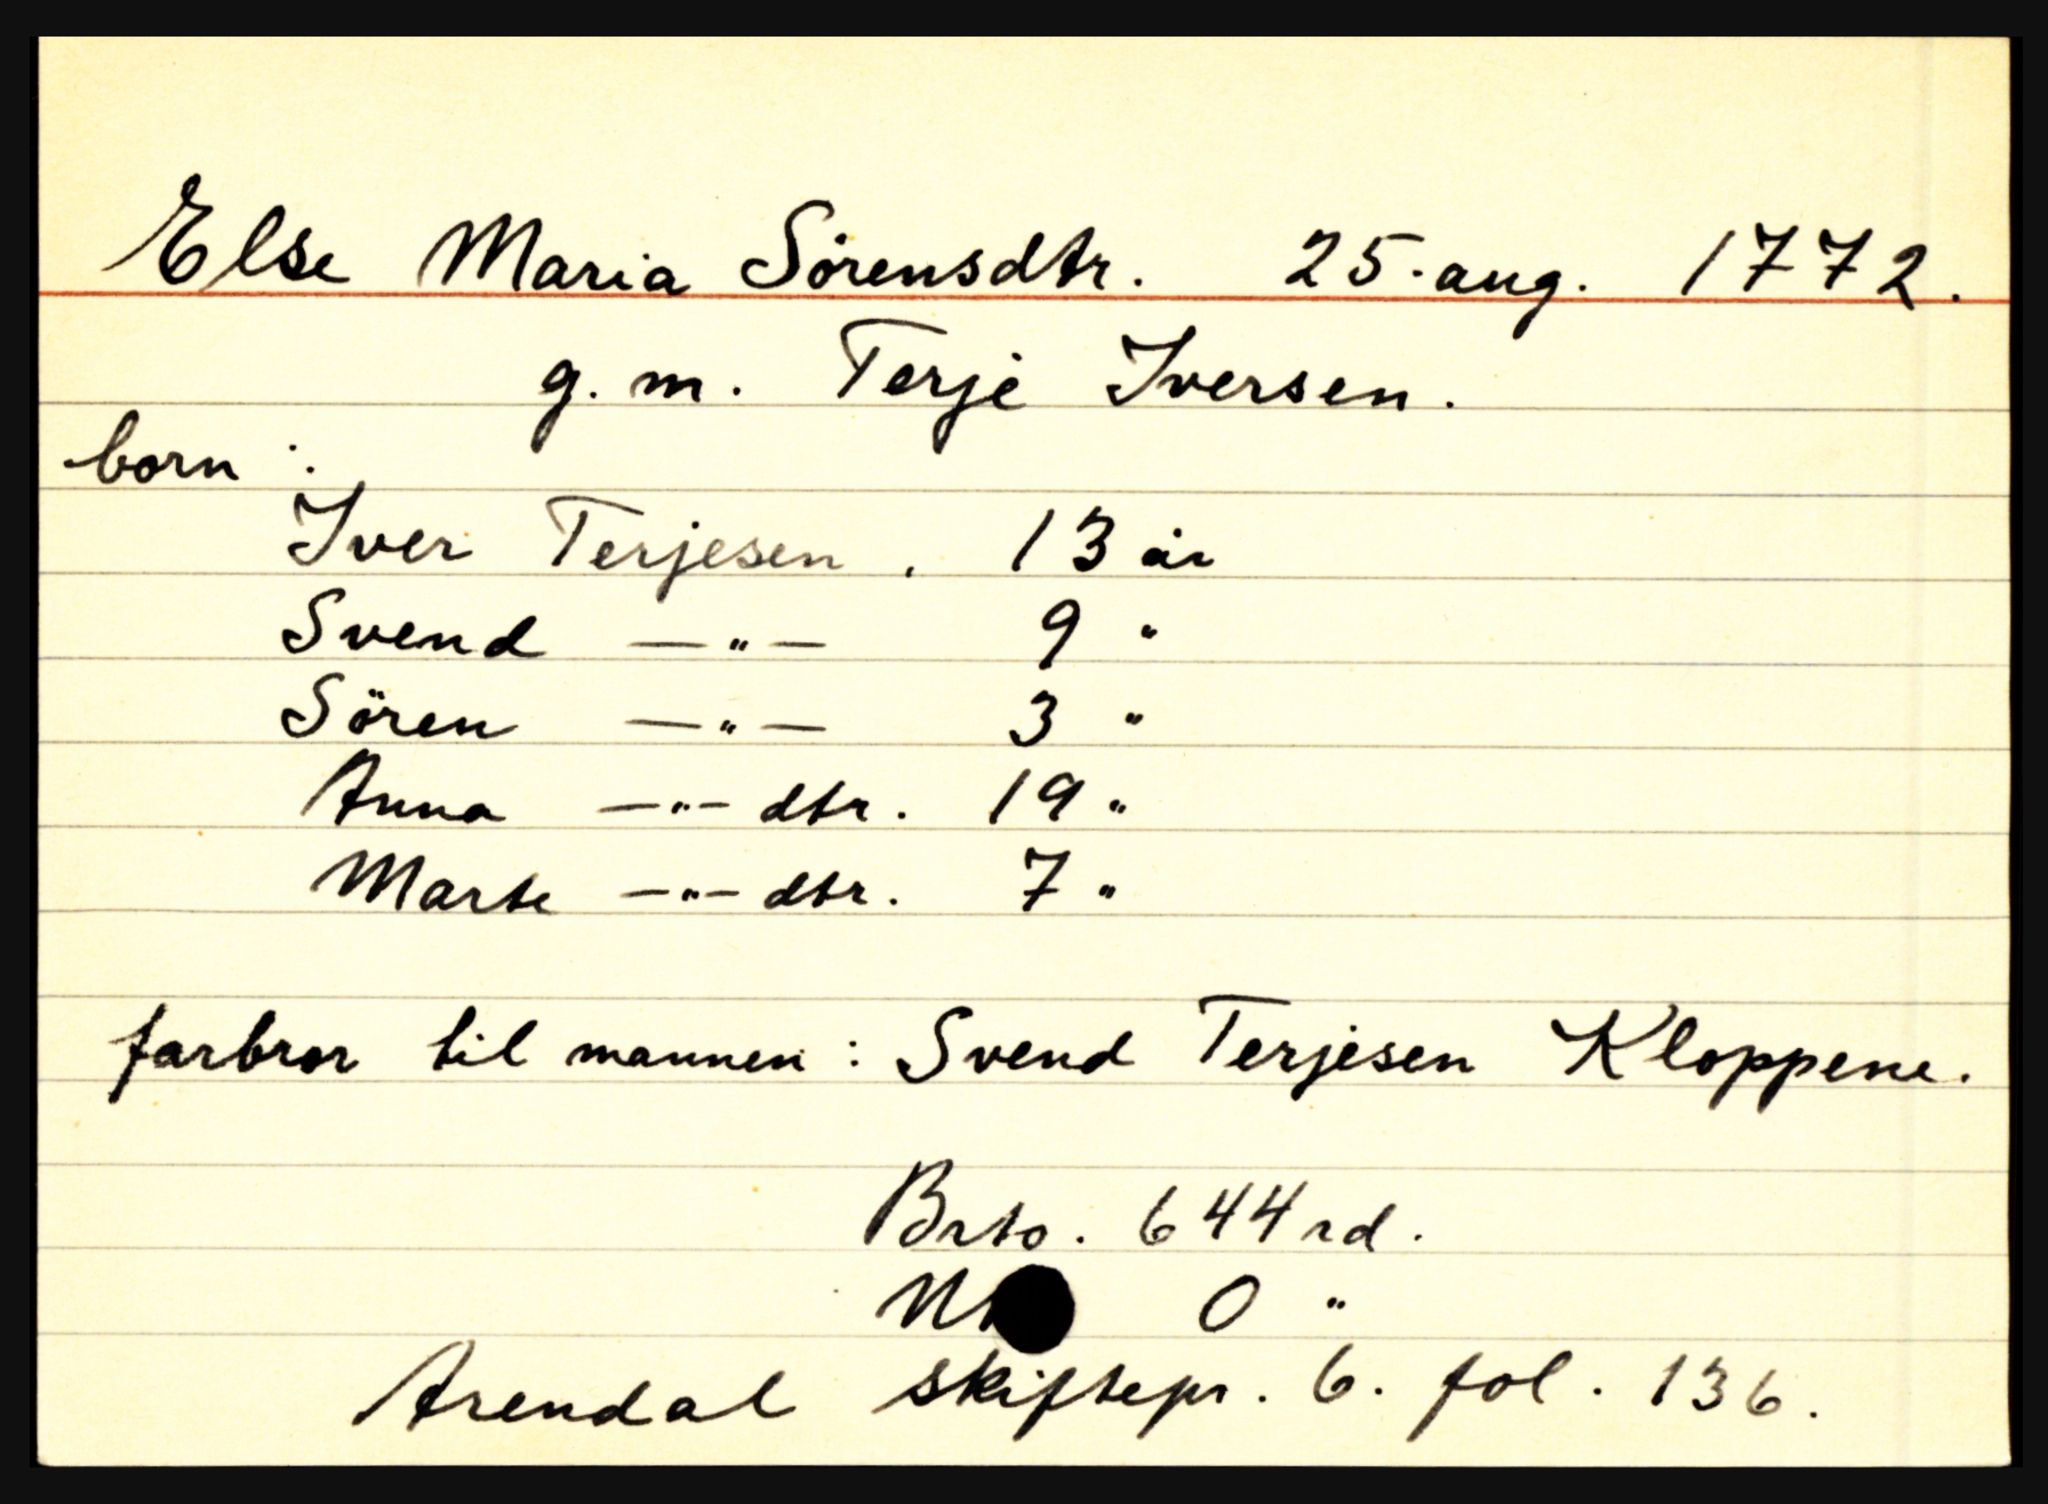 Else Maria Sörensdtr. 25. aug. 1772.
g. m. Terje Iversen.
born :
Iver Terjesen . 13 år
Svend — " — 9 "
Sören — " — 3 "
Anna — " — dtr. 19 "
Marte — " — dtr. 7 "
farbror til mannen : Svend Terjesen Kloppene.
Brto. 644 rd.
0 "
Arendal skiftepr. 6. fol. 136.